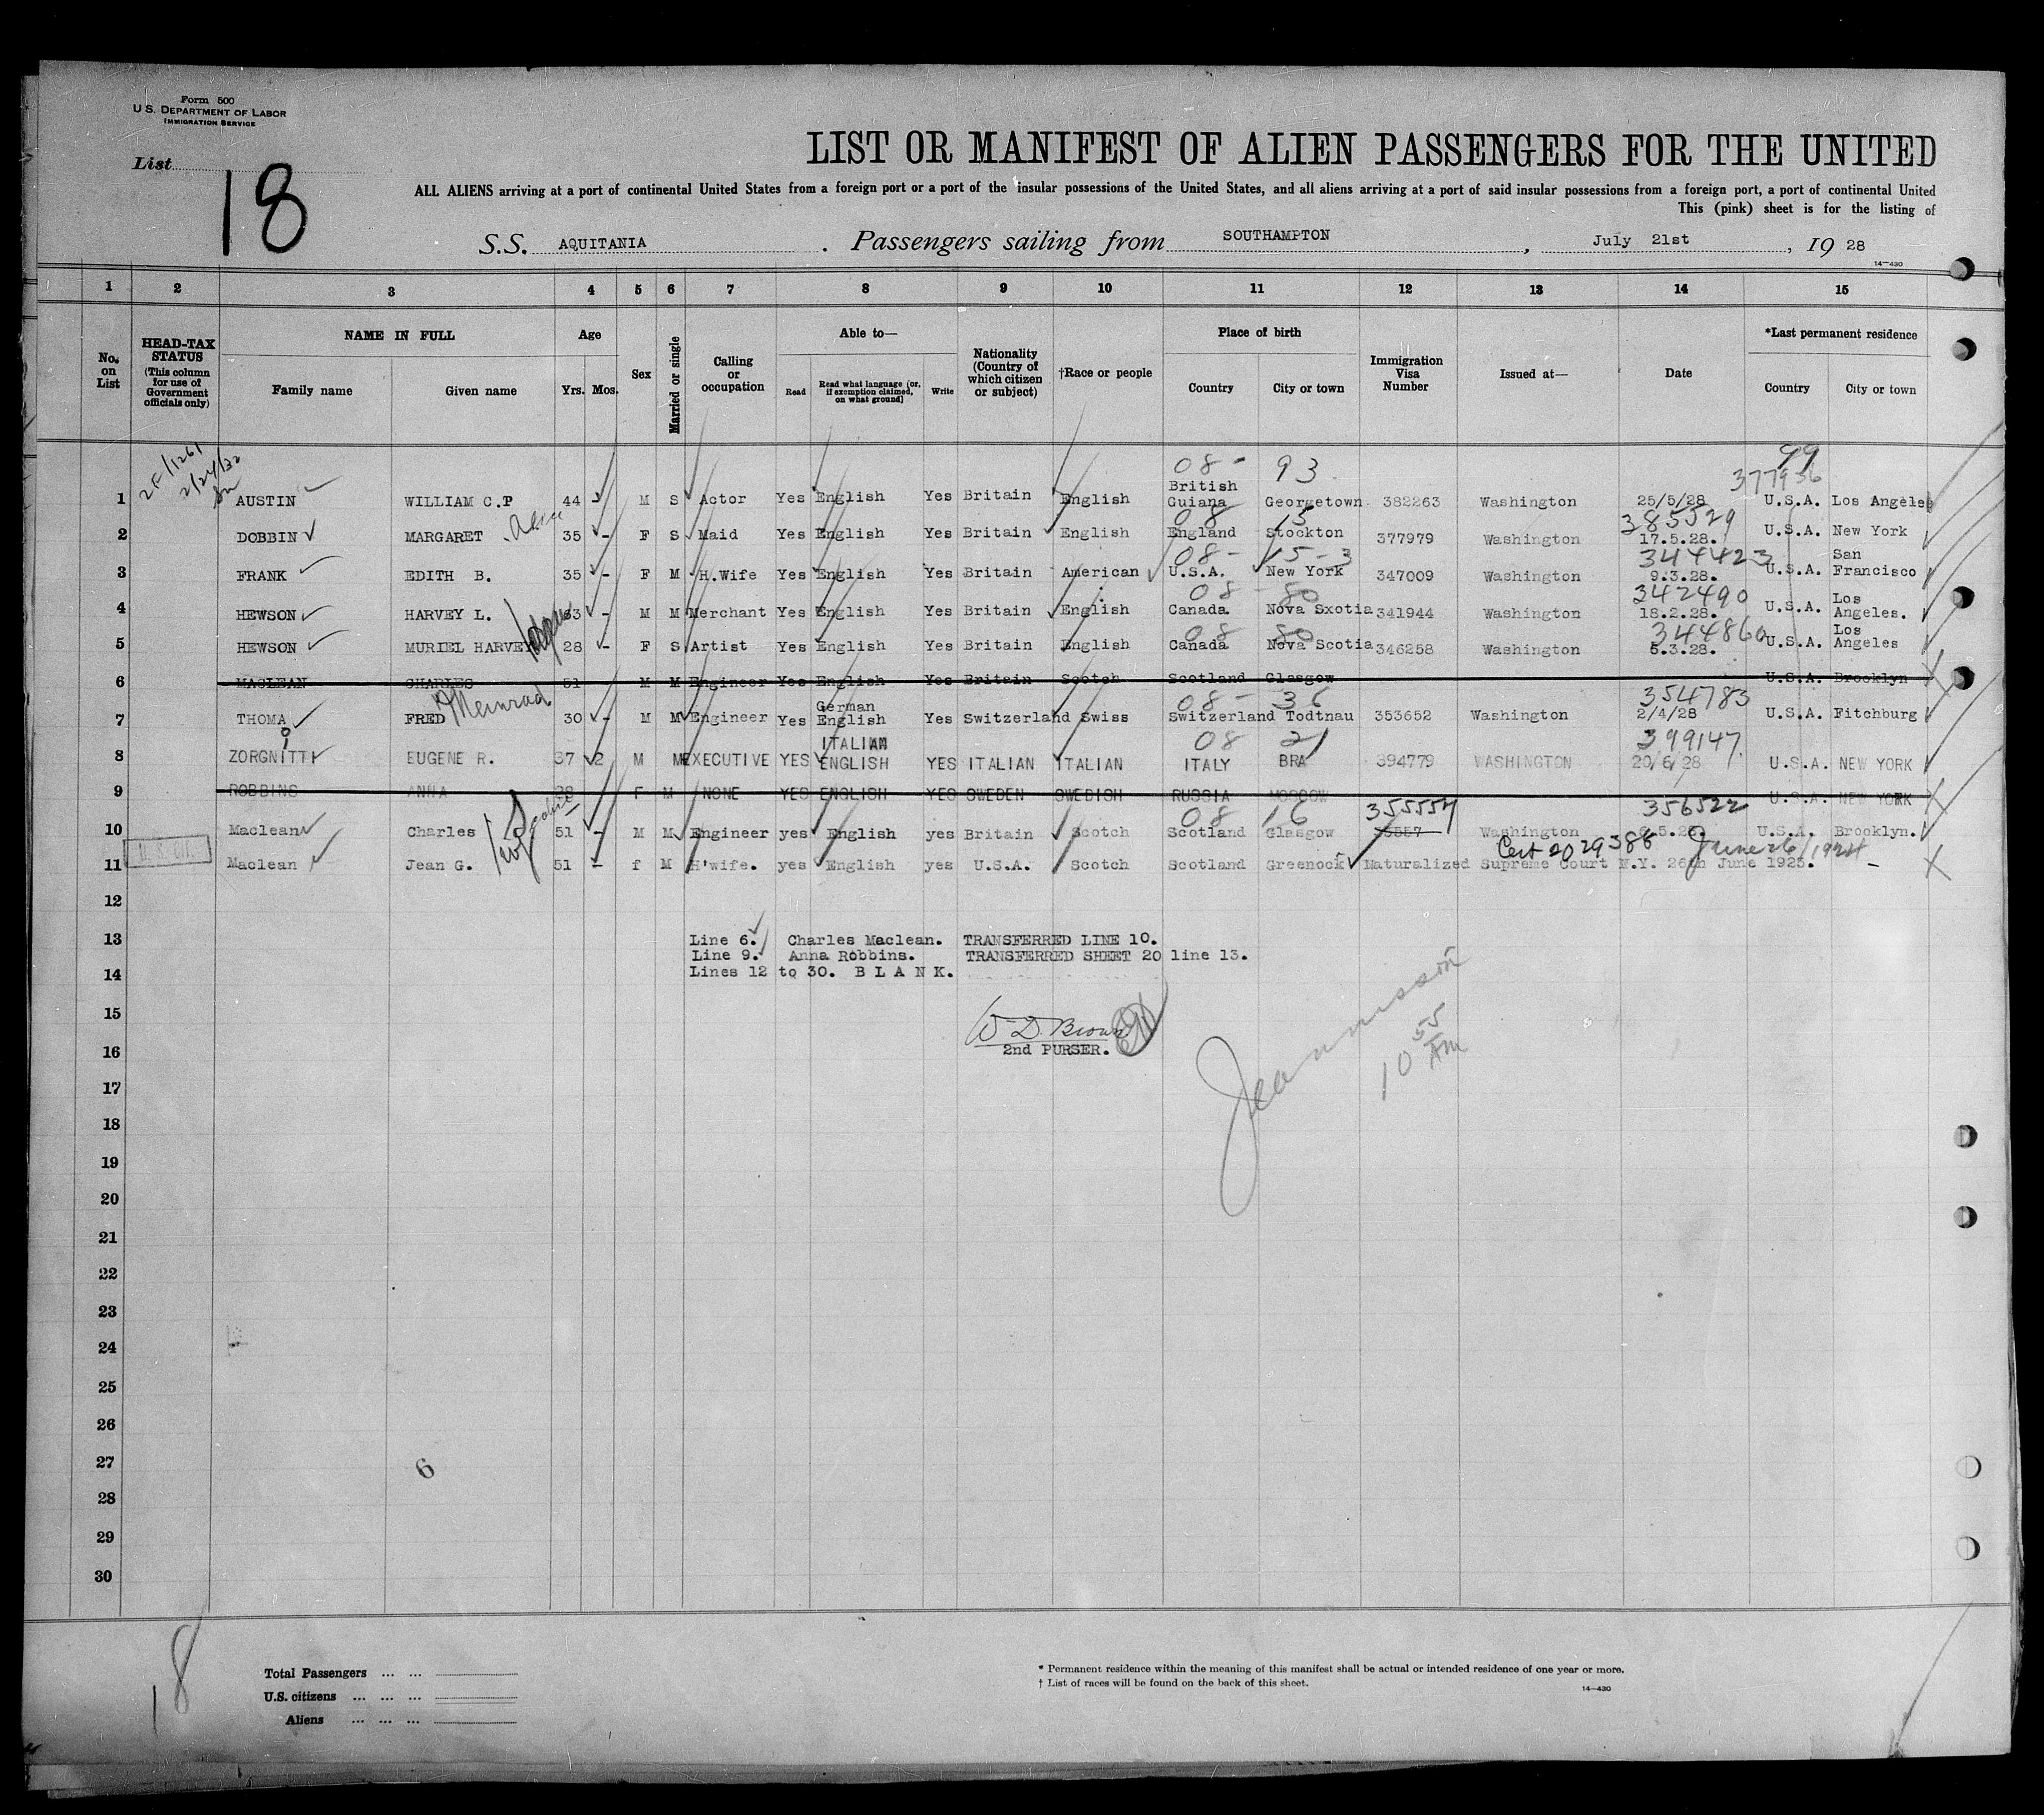 Form 500
U.S. DEPARTMENT OF LABOR
IMMIGRATION SERVICE
List 18
LIST OR MANIFEST OF ALIEN PASSENGERS FOR THE UNITED
ALL ALIENS arriving at a port of continental United States from a foreign port or a port of the insular possessions of the United States, and all aliens arriving at a port of said insular possessions from a foreign port, a port of continental United
This (pink) sheet is for the listing of
S.S. AQUITANIA . Passengers sailing from SOUTHAMPTON , July 21st , 19 28
14—430
1 2 3 4 5 6 7 8 9 10 11 12 13 14 15
No. on List
HEAD-TAX STATUS (This column for use of Government officials only)
NAME IN FULL Family name Given name
Age Yrs. Mos.
Sex
Married or single
Calling or occupation
Able to— Read Read what language [or, if exemption claimed, on what ground] Write
Nationality (Country of which citizen or subject)
†Race or people
Place of birth Country City or town
Immigration Visa Number
Issued at—
Date
*Last permanent residence Country City or town
2/24/32
08- 93 99
377936
1 AUSTIN WILLIAM C.P 44 - M S Actor Yes English Yes Britain English British Guiana Georgetown 382263 Washington 25/5/28 U.S.A. Los Angeles
08 15 385529
2 DOBBIN MARGARET Alice 35 - F S Maid Yes English Yes Britain English England Stockton 377979 Washington 17.5.28. U.S.A. New York
08- 15-3 344423
3 FRANK EDITH B. 35 - F M H.Wife Yes English Yes Britain American U.S.A. New York 347009 Washington 9.3.28. U.S.A. San Francisco
08-80 342490
4 HEWSON HARVEY L. 63 - M M Merchant Yes English Yes Britain English Canada Nova Sxotia 341944 Washington 18.2.28. U.S.A. Los Angeles.
08 80 344860
5 HEWSON MURIEL HARVEY 28 - F S Artist Yes English Yes Britain English Canada Nova Scotia 346258 Washington 5.3.28. U.S.A. Los Angeles
6 MACLEAN CHARLES 51 M M Engineer Yes English Yes Britain Scotch Scotland Glasgow U.S.A. Brooklyn
08-36 354783
7 THOMA FRED Meinrad 30 - M M Engineer Yes German English Yes Switzerland Swiss Switzerland Todtnau 353652 Washington 2/4/28 U.S.A. Fitchburg
08 21 399147
8 ZORGNITTI o EUGENE R. 37 2 M M EXECUTIVE YES ITALIAN ENGLISH YES ITALIAN ITALIAN ITALY BRA 394779 WASHINGTON 20/6/28 U.S.A. NEW YORK
9 ROBBINS ANNA 28 F M NONE YES ENGLISH YES SWEDEN SWEDISH RUSSIA MOSCOW U.S.A. NEW YORK
08 16 355557 356522
10 Maclean Charles 51 - M M Engineer yes English yes Britain Scotch Scotland Glasgow Washington U.S.A. Brooklyn.
Cert 2029388 June 26/1924
U.S. CIT.
11 Maclean Jean G. 51 - f M H'wife. yes English yes U.S.A. Scotch Scotland Greenock Naturalized Supreme Court N.Y. 26th June 1925. -
12
13 Line 6. Charles Maclean. TRANSFERRED LINE 10.
Line 9. Anna Robbins. TRANSFERRED SHEET 20 line 13.
14 Lines 12 to 30. B L A N K.
15
W D Brown
16 2nd PURSER.
10 55 AM
17
18
19
20
21
22
23
24
25
26
27
6
28
29
30
18
Total Passengers ... ...
U.S. citizens ... ... ...
Aliens ... ... ...
* Permanent residence within the meaning of this manifest shall be actual or intended residence of one year or more.
† List of races will be found on the back of this sheet.
14—430